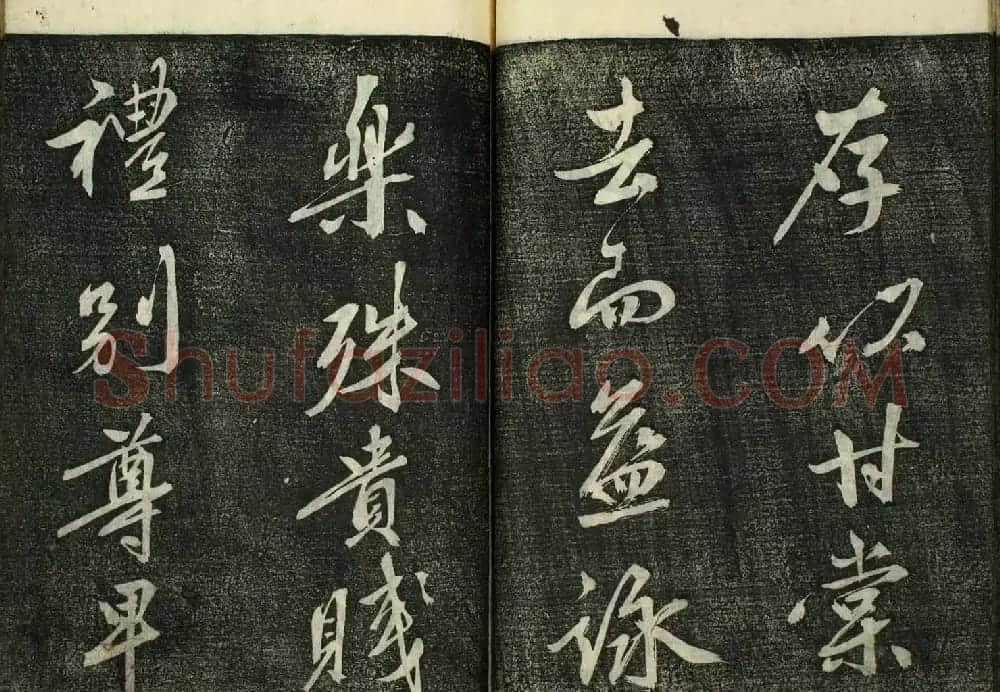 存以甘棠
去而益詠
樂殊貴賤
禮別尊卑
Shufaziliao.COM